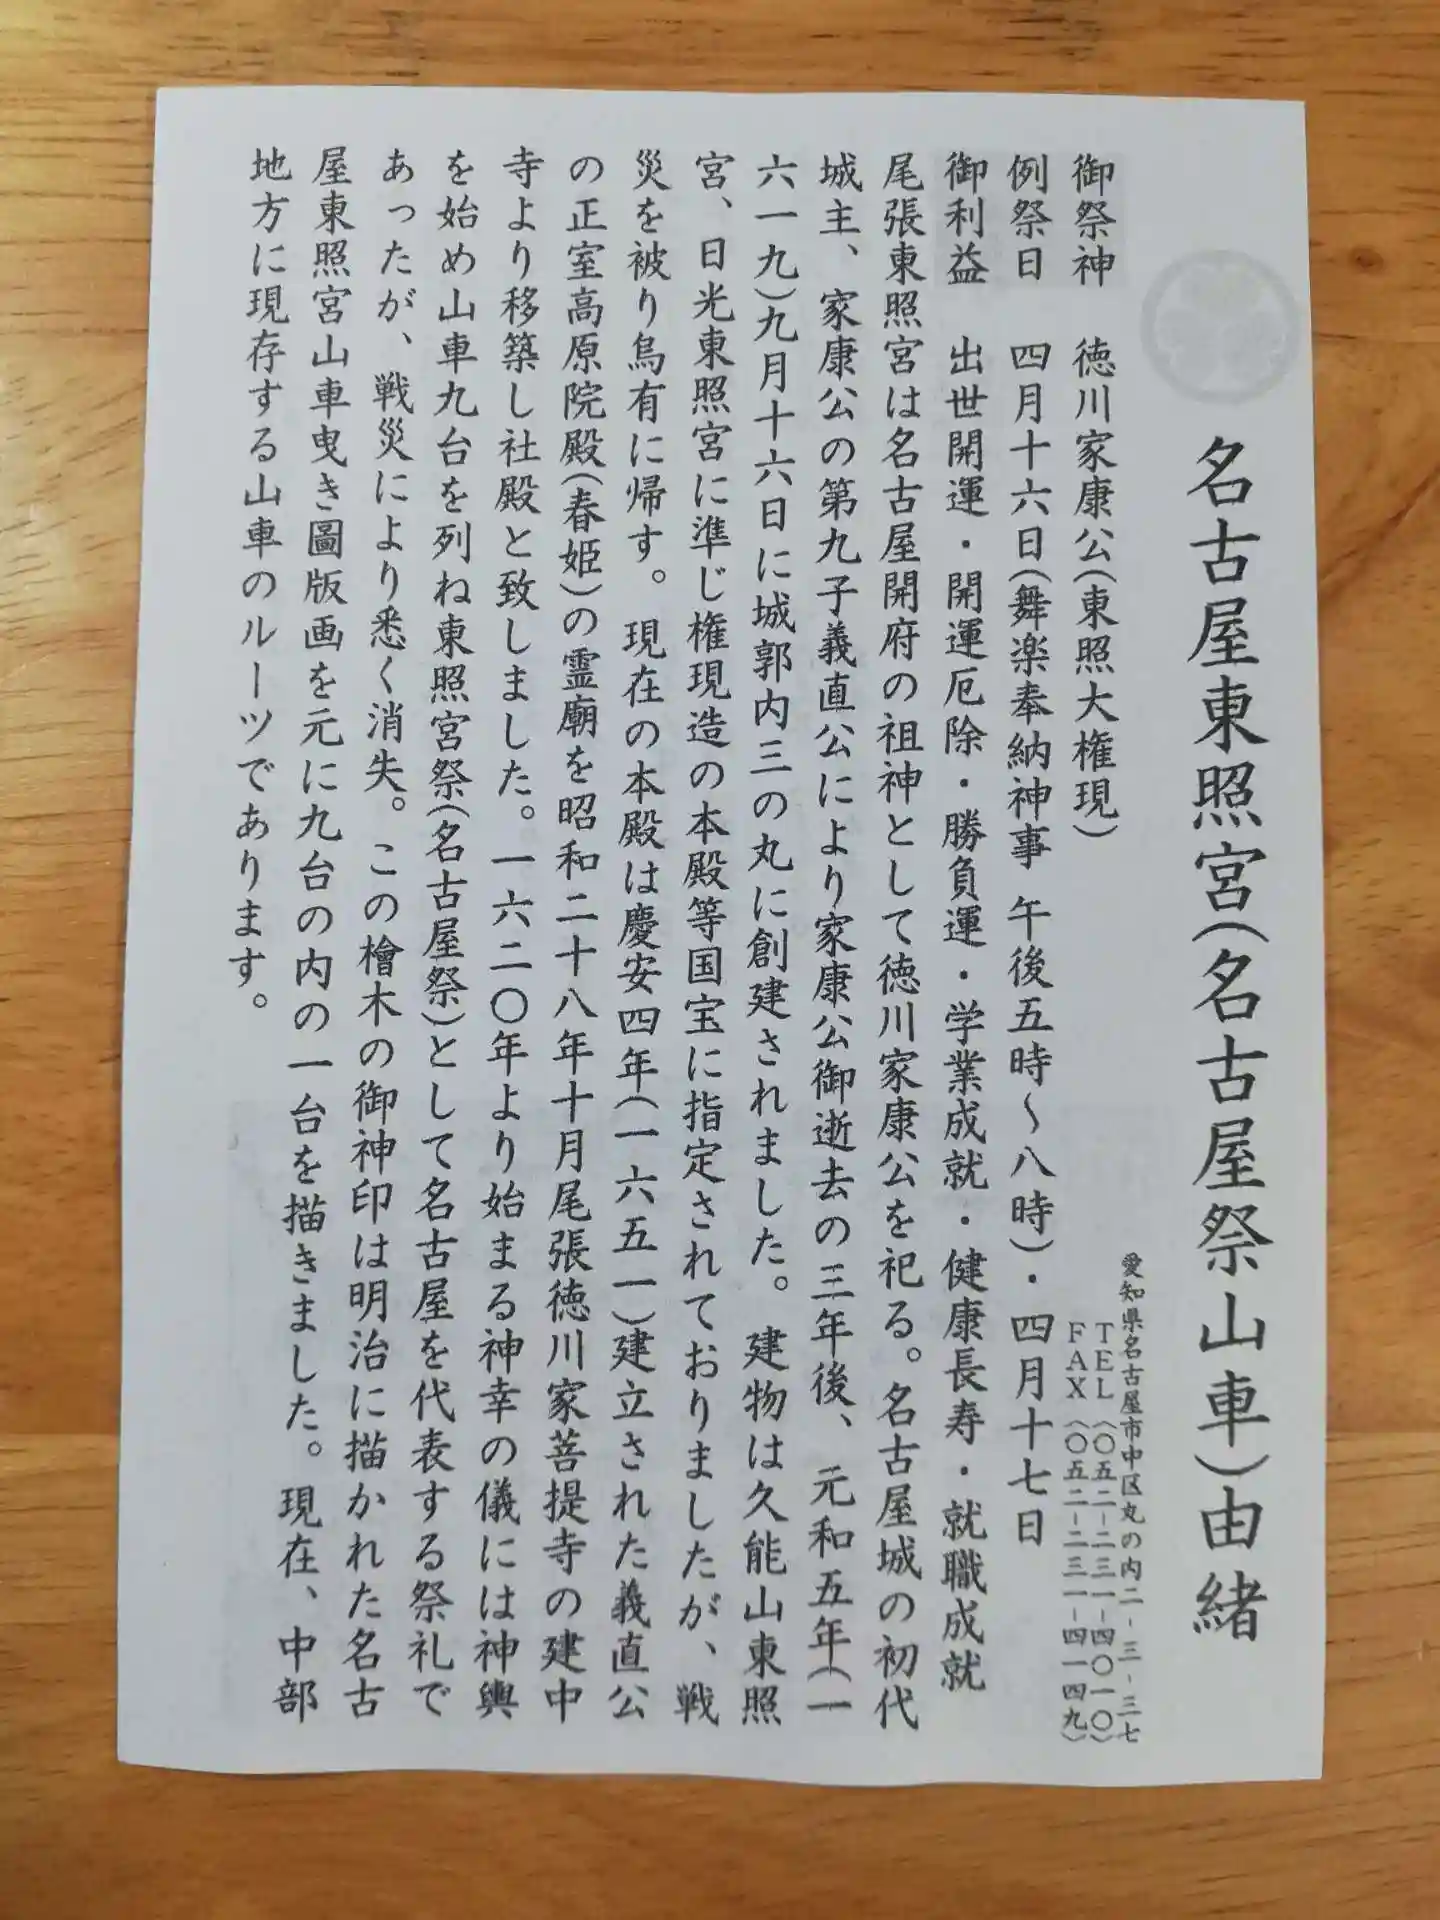 名古屋東照宮(名古屋祭山車)由緒
愛知県名古屋市中区丸の内二-三-三七
TEL(〇五二-二三一-四〇一〇)
FAX(〇五二-二三一-四一四九)
御祭神 徳川家康公(東照大権現)
例祭日 四月十六日(舞楽奉納神事 午後五時~八時)・四月十七日
御利益 出世開運・開運厄除・勝負運・学業成就・健康長寿・就職成就
尾張東照宮は名古屋開府の祖神として徳川家康公を祀る。名古屋城の初代
城主、家康公の第九子義直公により家康公御逝去の三年後、元和五年(一
六一九)九月十六日に城郭内三の丸に創建されました。建物は久能山東照
宮、日光東照宮に準じ権現造の本殿等国宝に指定されておりましたが、戦
災を被り烏有に帰す。現在の本殿は慶安四年(一六五一)建立された義直公
の正室高原院殿(春姫)の霊廟を昭和二十八年十月尾張徳川家菩提寺の建中
寺より移築し社殿と致しました。一六二〇年より始まる神幸の儀には神輿
を始め山車九台を列ね東照宮祭(名古屋祭)として名古屋を代表する祭礼で
あったが、戦災により悉く消失。この檜木の御神印は明治に描かれた名古
屋東照宮山車曳き圖版画を元に九台の内の一台を描きました。現在、中部
地方に現存する山車のルーツであります。